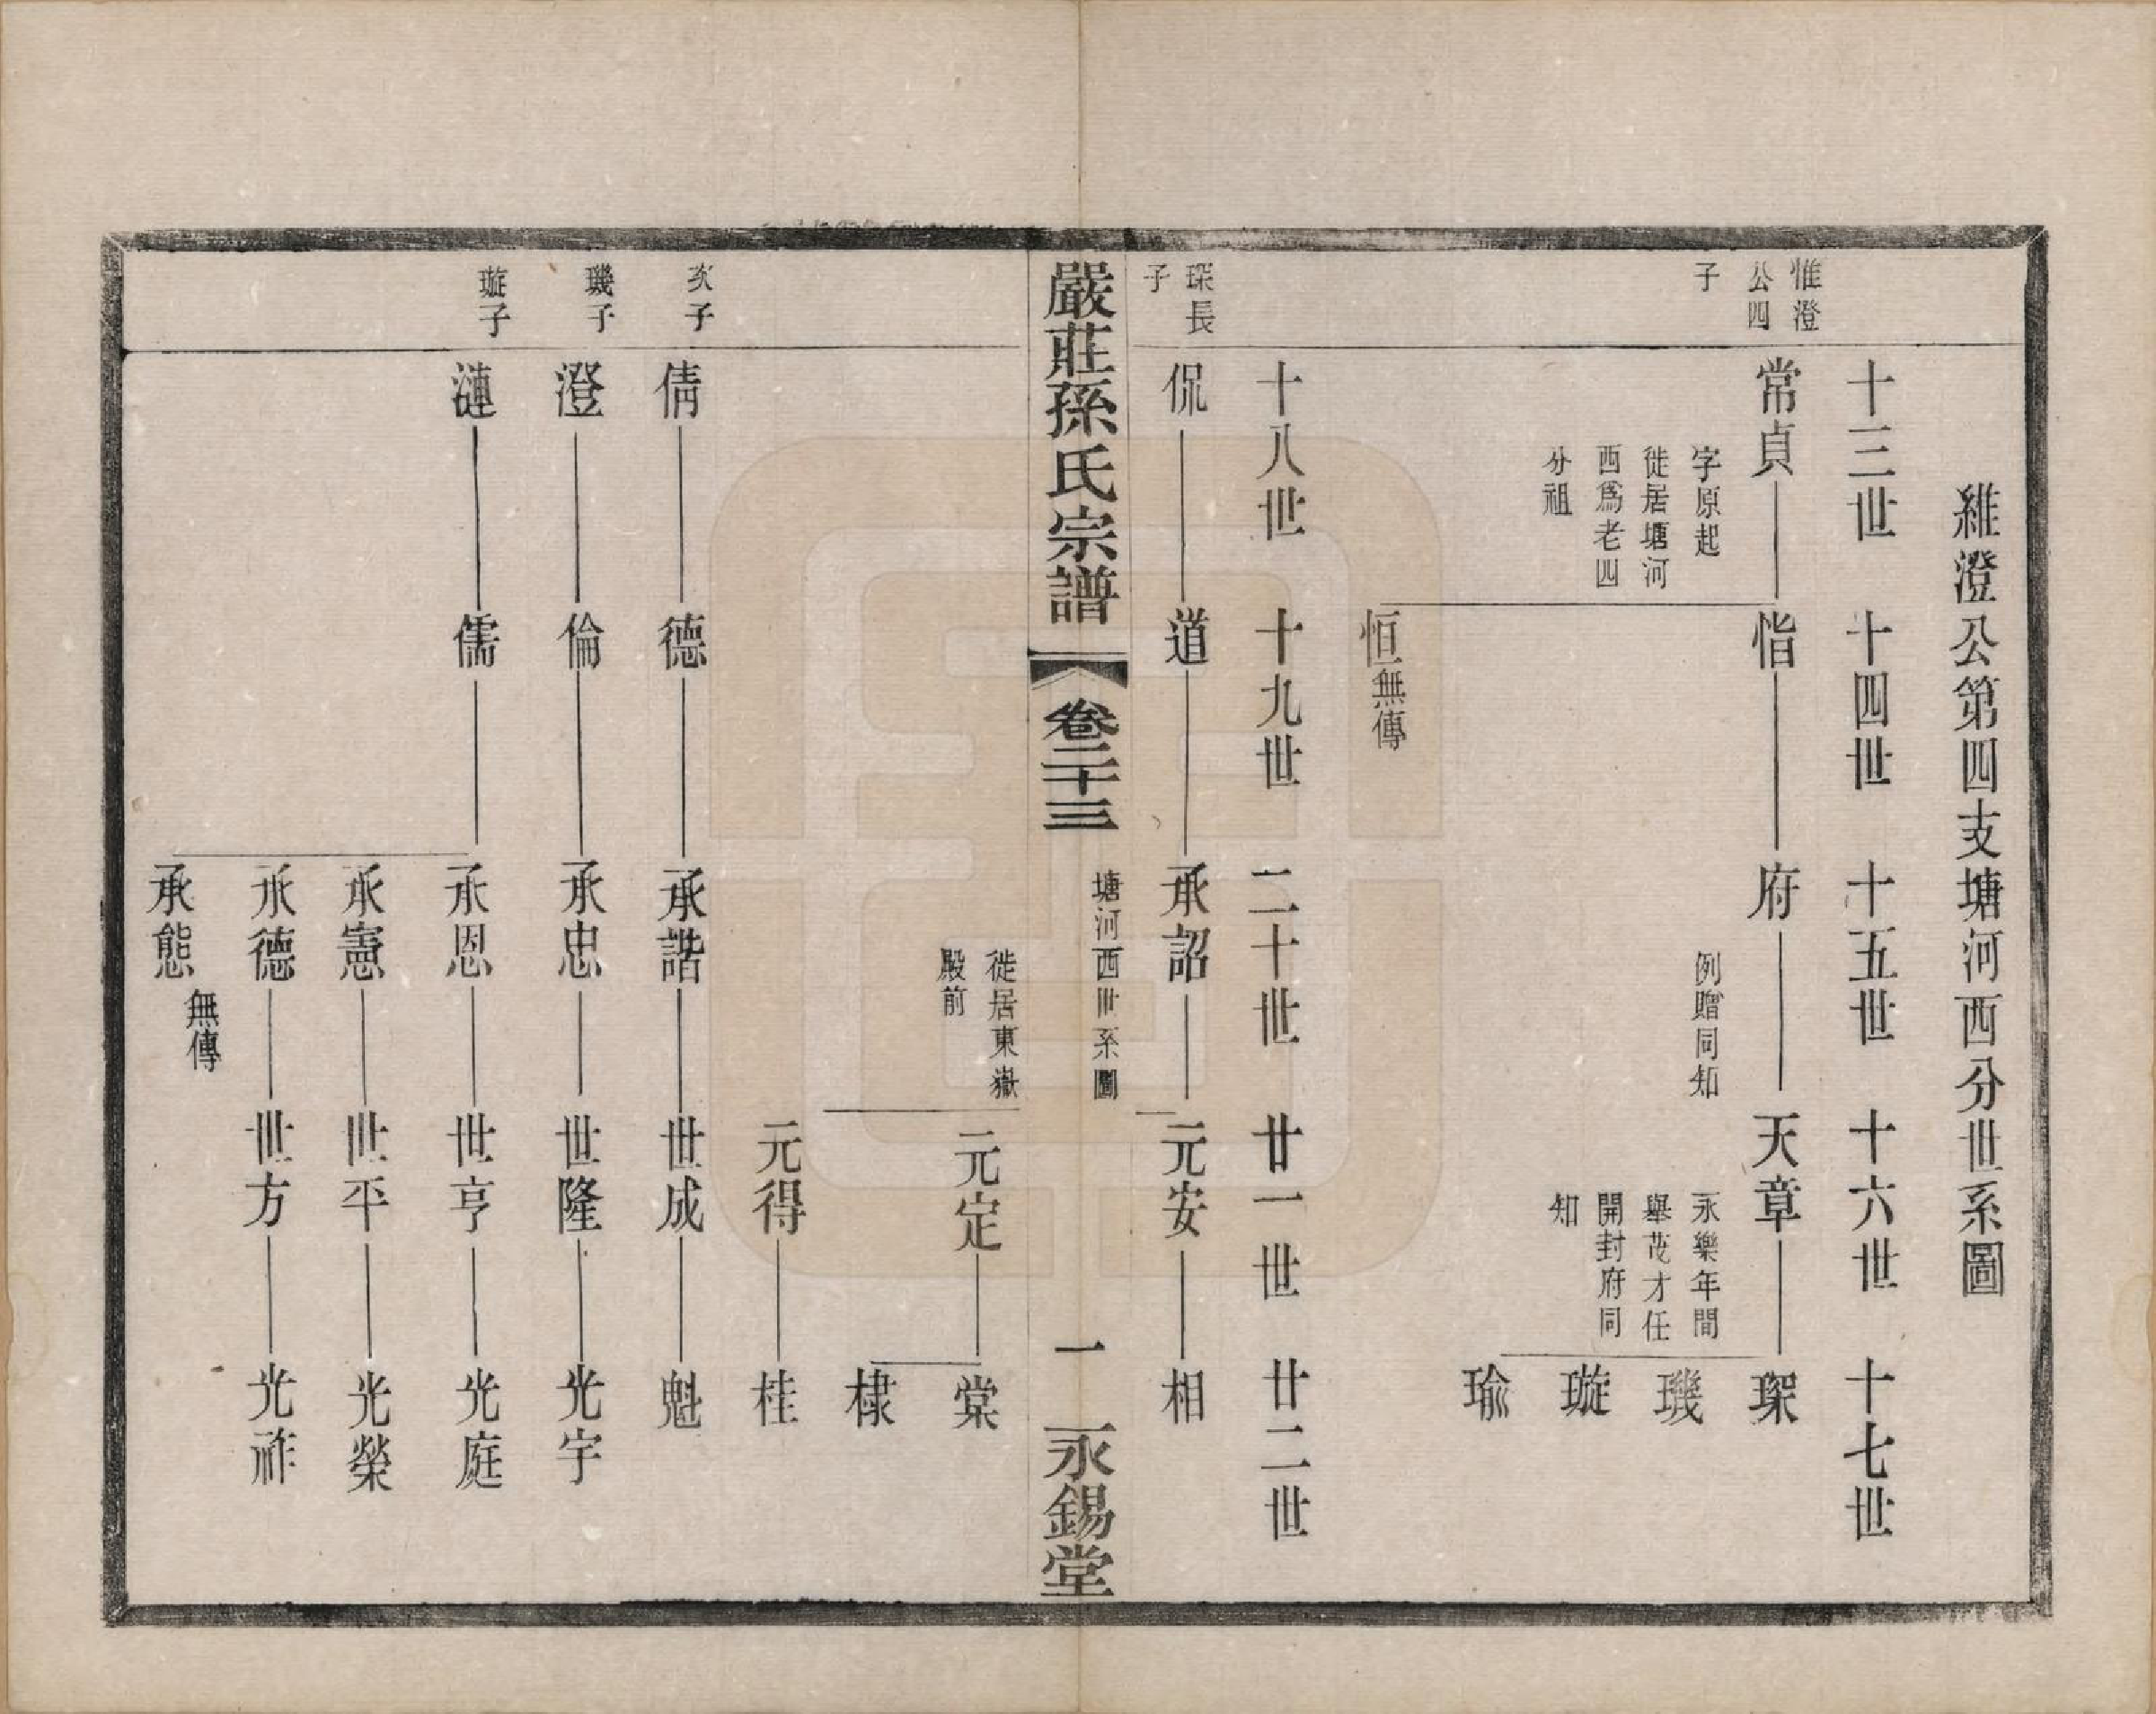 維澄公第四支塘河西分世系圖
十三世 十四世 十五世 十六世 十七世
惟澄
公四
子
常貞 愭 府 天章 琛
字原起
徙居塘河
西爲老四
分祖
例贈同知
永樂年間
舉茂才任
開封府同
知
璣
璇
瑜
恒無傳
十八世 十九世 二十世 廿一世 廿二世
琛長
子
侃 道 承詔 元安 相
嚴莊孫氏宗譜 卷二十三 塘河西世系圖 一 永錫堂
徙居東嶽
殿前
元定 棠
棣
元得 桂
次子
倩 德 承諧 世成 魁
璣子
澄 倫 承忠 世隆 光宇
璇子
漣 儒 承恩 世亨 光庭
承憲 世平 光榮
承德 世方 光祚
承態 無傳